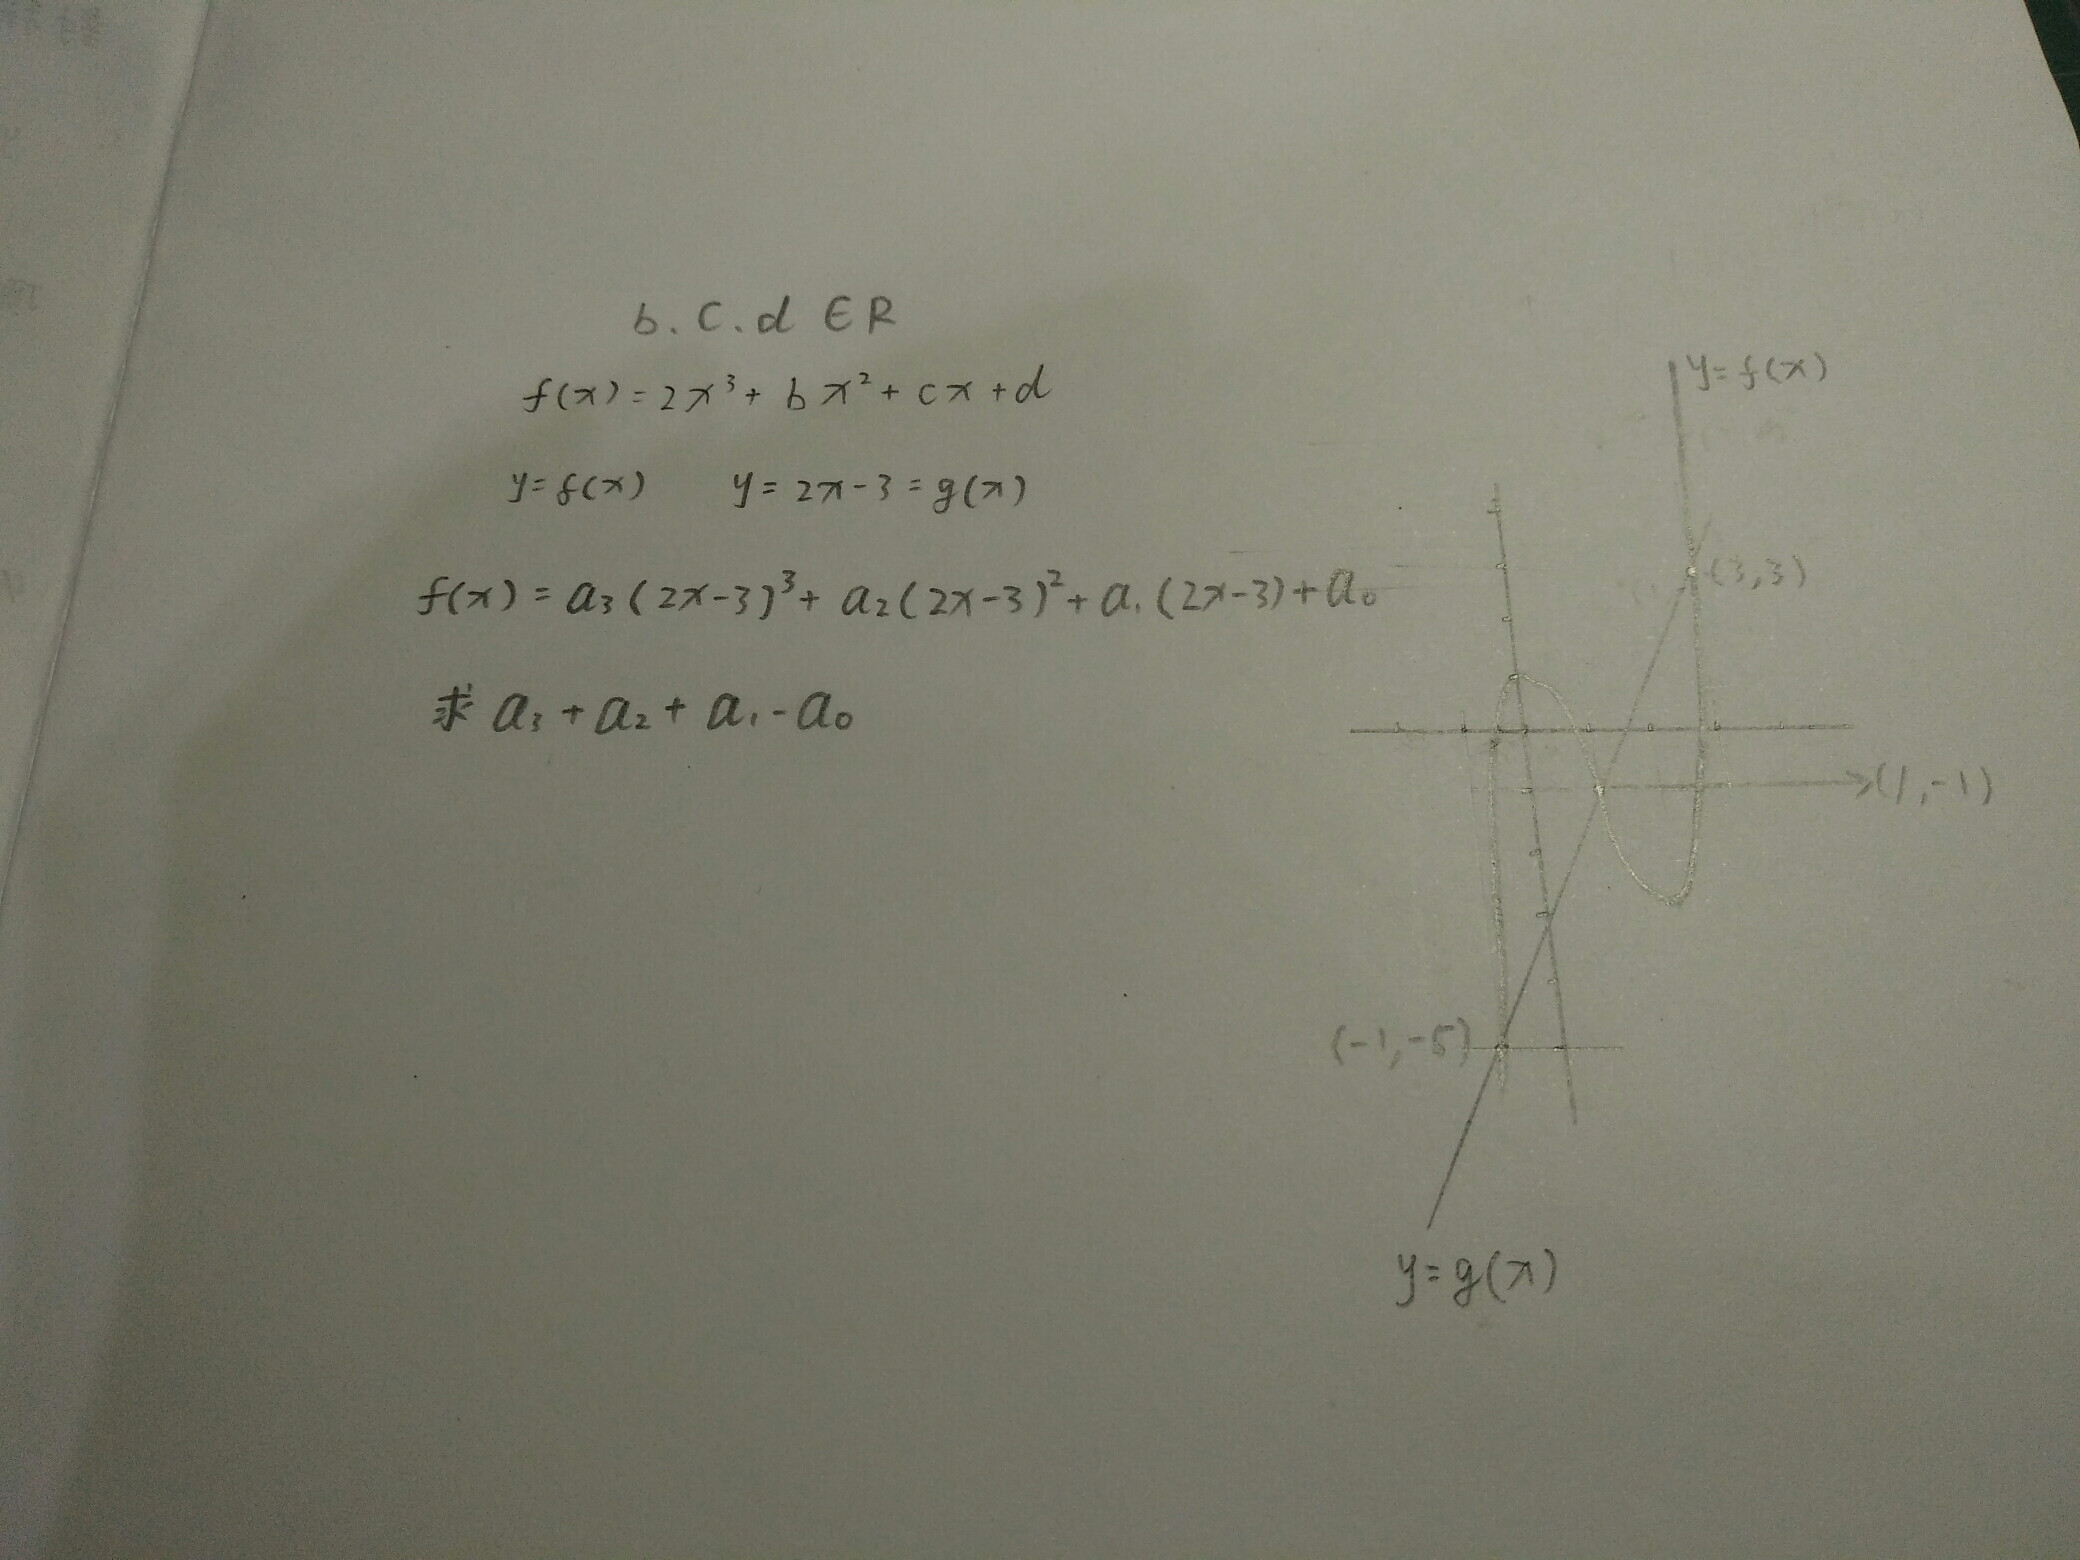 b.c.d ∈R
f(x)=2x³+bx²+cx+d
y=f(x) y=2x-3=g(x)
f(x)=a₃(2x-3)³+a₂(2x-3)²+a₁(2x-3)+a₀
求 a₃+a₂+a₁-a₀
y=f(x)
(3,3)
(1,-1)
(-1,-5)
y=g(x)